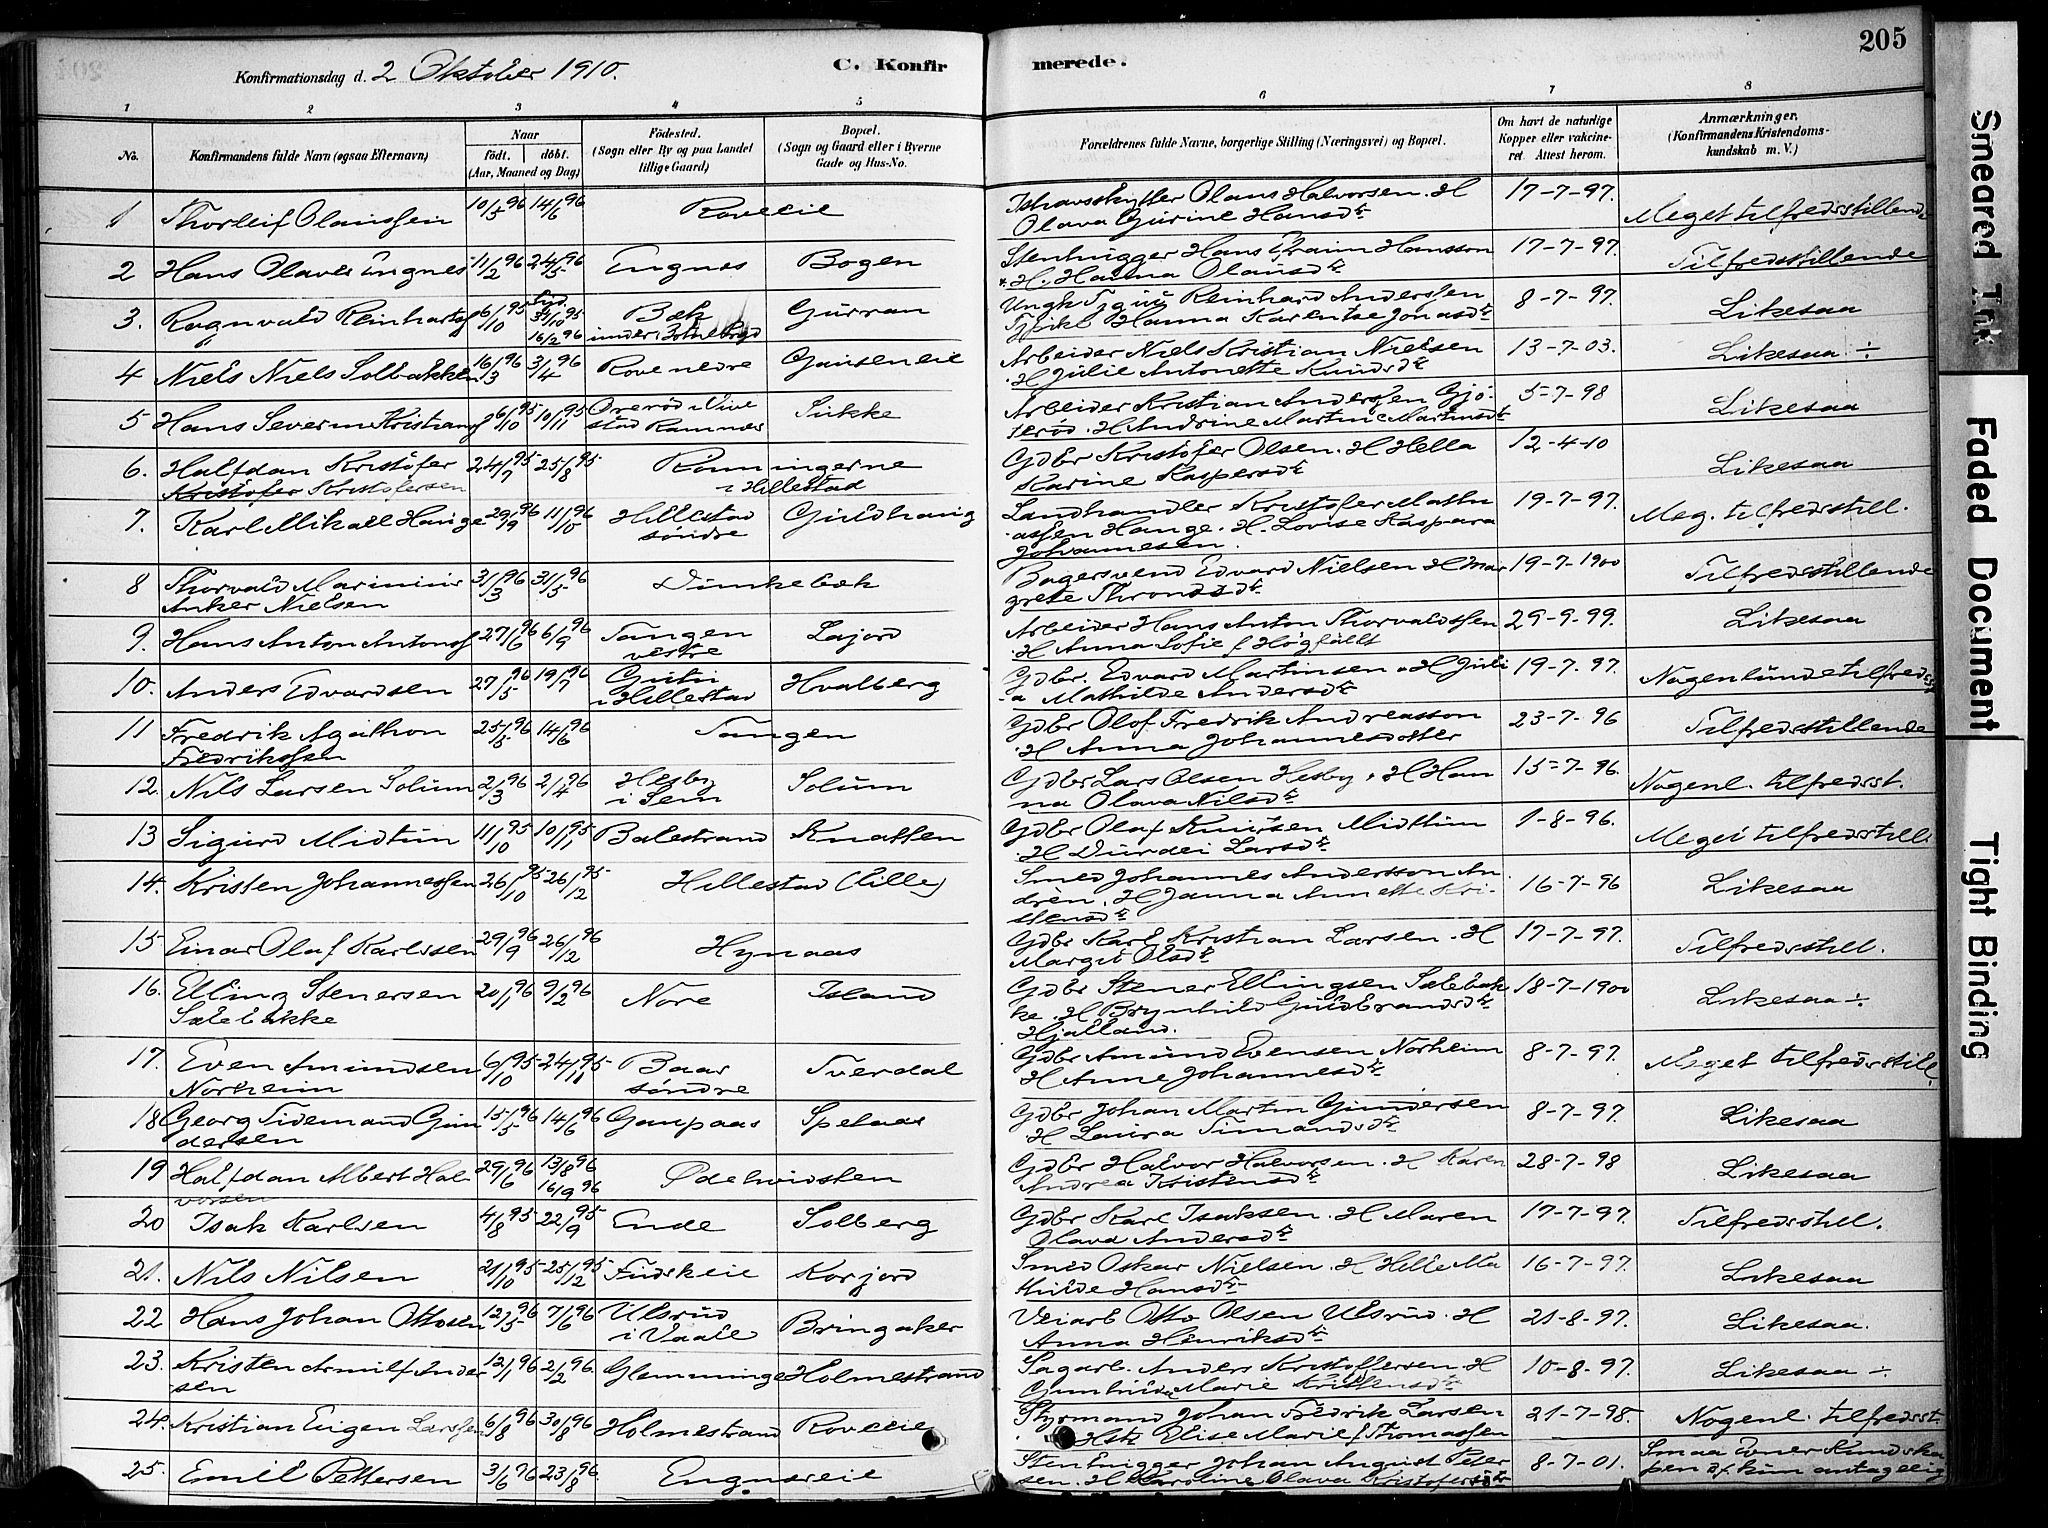 205
Konfirmationsdag d. 2 Oktober 1910.
C. Konfirmerede.
1 2 3 4 5 6 7 8
No.
Konfirmandens fulde Navn (ogsaa Efternavn)
Naar
födt. döbt.
(Aar, Maaned og Dag)
Födested.
(Sogn eller By og paa Landet
tillige Gaard)
Bopæl.
(Sogn og Gaard eller i Byerne
Gade og Hus-No.
Forældrenes fulde Navne, borgerlige Stilling (Næringsvei) og Bopæl.
Om havt de naturlige
Kopper eller vakcine-
ret. Attest herom.
Anmærkninger,
(Konfirmandens Kristendoms-
kundskab m. V.)
1 Thorleif Olaussen 10/5 96 14/6 96 Roveeie
Ishavsskytter Olaus Halvorsen. H
Olava Gurine Hansdtr 17-7-97. Meget tilfredsstillende
2 Hans Olaves Engnes 11/2 96 24/5 96 Engnes Bogen
Stenhugger Hans Efraim Hansson
H. Hanna Olausdtr 17-7-97. Tilfredsstillende
3. Rognvald Reinhartsf 6/10 95 16/2 96 Bæk
under Gurran
Ungk. Reinhard Anderssen
Pike Hanna Karentse Jonasdtr 8-7-97. Likesaa
4 Niels Niels Solbakken 16/3 96 3/4 96 Rove nedre Gauseneie
Arbeider Niels Kristian Nielsen
H Julie Antonette Knudsdtr 13-7-03. Likesaa ÷
5 Hans Severin Kristiansf 6/10 95 10/11 95 Orerød i Vive
stad Ramnæs Sukke
Arbeider Kristian Anderssen Gjö-
terød. H Andrine Martine Martinsdtr 5-7-98 Likesaa
6. Halfdan Kristofer
Kristofer Kristofersen 24/7 95 25/8 95 Rönningerne
i Hillestad
Gdbr Kristofer Olsen. H Hella
Karine Kaspersdtr 12-4-10 Likesaa
7. Karl Mikael Hauge 29/9 96 11/10 96 Hillestad
søndre Guldhaug
Landhandler Kristofer Mathi
assen Hauge. H. Lovise Kaspara
Johannesen. 19-7-97. Meg. tilfredsstill.
8 Thorvald Marinius
Anker Nielsen 31/3 96 31/5 96 Dunkebæk
Bagersvend Edvard Nielsen H Mar
grete Throndsdtr 19-7-1900 Tilfredsstillende
9. Hans Anton Antonsf 27/6 96 6/9 96 Tangen
vestre Lajord
Arbeider Hans Anton Thorvaldssen
H Anna Sofie f Högfällt 29-9-99. Likesaa
10. Anders Edvardsen 27/5 96 19/7 96 Gutu
i Hillestad Hvalberg
Gdbr. Edvard Martinsen & H Juli
a Mathilde Andersdtr 19-7-97. Nogenlunde tilfredsst
11 Fredrik Agathon
Fredrikssen 25/5 96 14/6 96 Tangen
Gdbr Olof Fredrik Andreasson
H Anna Johannesdotter 23-7-96 Tilfredsstillende
12. Nils Larsen Solum 2/3 96 2/4 96 Hesby
i Sem Solum
Gdbr Lars Olsen Hesby & H Han
na Olava Nilsdtr 15-7-96. Nogenl. tilfredsst.
13 Sigurd Midtun 11/10 95 10/11 95 Balestrand Knatten
Gdbr Olaf Knutsen Midttun
H Durdei Larsdtr 1-8-96. Meget tilfredsstill
14. Kristen Johannessen 26/10 95 26/12 95 Hillestad (lille)
Smed Johannes Andersson An-
drén. H Janna Annette Kri-
stensdtr 16-7-96 Likesaa
15 Einar Olaf Karlssen 29/9 96 26/12 96 Hynaas
Gdbr Karl Kristian Larsen. H
Margit Olsdtr 17-7-97. Tilfredsstill.
16. Elling Stenersen
Sælebakke 20/1 96 9/2 96 Nore Island
Gdbr Stener Ellingsen Sælebak
ke. H Brynhild Guldbrandsdtr
Hjalland. 18-7-1900 Likesaa ÷
17. Even Amundsen
Norheim 6/10 95 24/11 95 Baar
søndre Sverdal
Gdbr Amund Evensen Norheim
H Anne Johannesdtr 8-7-97. Meget tilfredsstill
18 Georg Tidemand Gun
dersen 15/5 96 14/6 96 Gaupaas Spelaas
Gdbr Johan Martin Gundersen
H Laura Timandsdtr 8-7-97. Likesaa
19 Halfdan Albert Hal
vorsen 29/6 96 13/8 96
16/9 96 Ødehvidsten
Gdbr Halvor Halvorsen. H Karen
Andrea Kristensdtr 28-7-98 Likesaa
20 Isak Karlsen 4/8 95 22/9 95 Ende Solberg
Gdbr Karl Isaksen. H Maren
Olava Andersdtr 17-7-97. Tilfredsstill.
21. Nils Nilsen 21/10 95 25/12 95 Fuskeie Korjord
Smed Oskar Nielsen. H Helle Ma
thilde Hansdtr 16-7-97. Likesaa
22 Hans Johan Ottosen 12/5 96 7/6 96 Ulsrud
i Vaale Bringaker
Veiarb Otto Olsen Ulsrud. H
Anna Henriksdtr 21-8-97. Likesaa.
23. Kristen Arnulf Ander
sen 12/1 96 2/2 96. Glemminge Holmestrand
Sagarb. Anders Kristoffersen. H
Gunhilda Marie Kristensdtr 10-8-97. Likesaa ÷
24. Kristian Eugen Larssen 6/8 96 30/8 96 Holmestrand Roveeie
Styrmand Johan Fredrik Larsen
Hstr Elise Marie f Thomassen 21-7-98. Nogenl. tilfredsst.
25. Emil Pettersen 3/6 96 23/8 96. Engneseie
Stenhugger Johan August Peter
sen. H Karoline Olava Kristofersdtr 8-7-01. Smaa Evner Kundska
pen af kun antagelig
Smeared Ink
Faded Document
Tight Binding